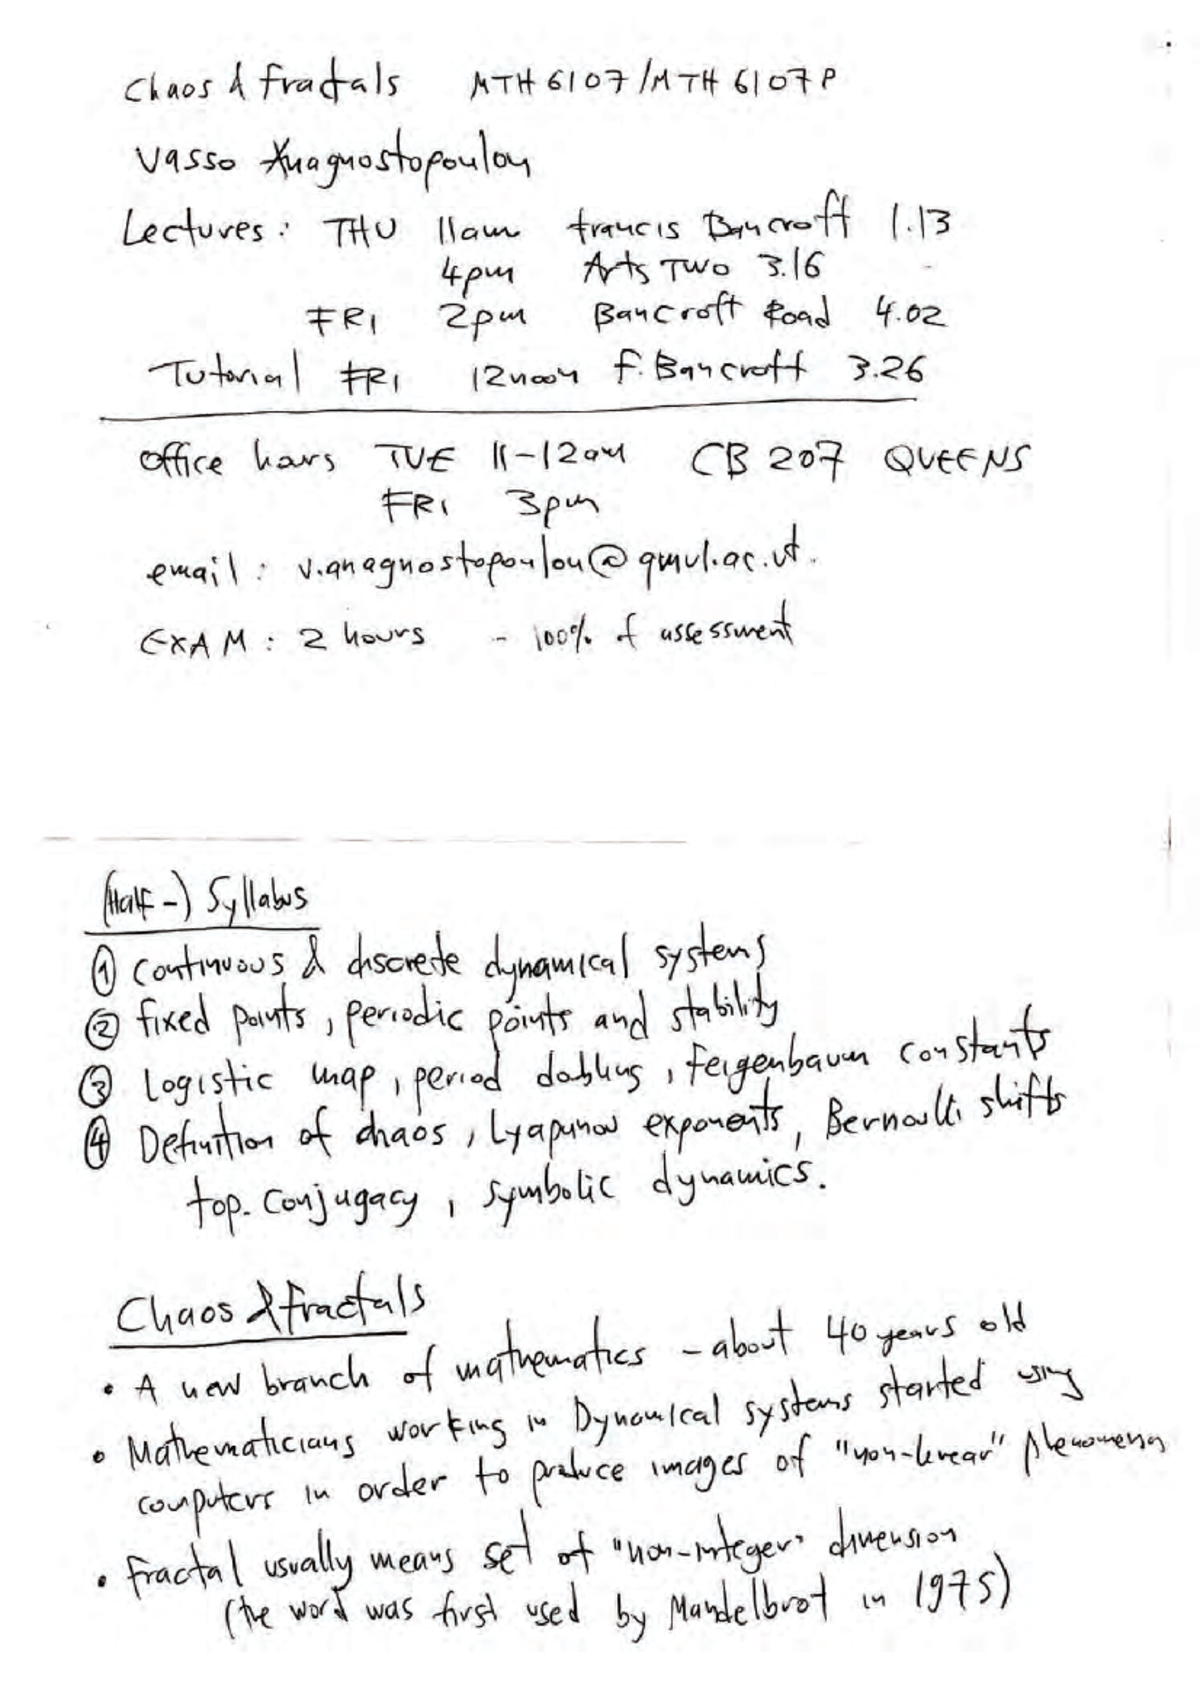 Chaos & fractals MTH6107/MTH6107P
Vasso Anagnostopoulou
Lectures: THU 11am Francis Bancroft 1.13
4pm Arts Two 3.16
FRI 2pm Bancroft Road 4.02
Tutorial FRI 12noon F. Bancroft 3.26
Office hours TUE 11-12am CB 207 QUEENS
FRI 3pm
email: v.anagnostopoulou@qmul.ac.uk.
EXAM: 2 hours - 100% of assessment
(Half-) Syllabus
① Continuous & discrete dynamical systems
② fixed points, periodic points and stability
③ Logistic map, period doubling, Feigenbaum constants
④ Definition of chaos, Lyapunov exponents, Bernoulli shifts
top. conjugacy, symbolic dynamics.
Chaos & fractals
• A new branch of mathematics - about 40 years old
• Mathematicians working in Dynamical systems started using
computers in order to produce images of "non-linear" phenomena
• Fractal usually means set of "non-integer" dimension
(the word was first used by Mandelbrot in 1975)